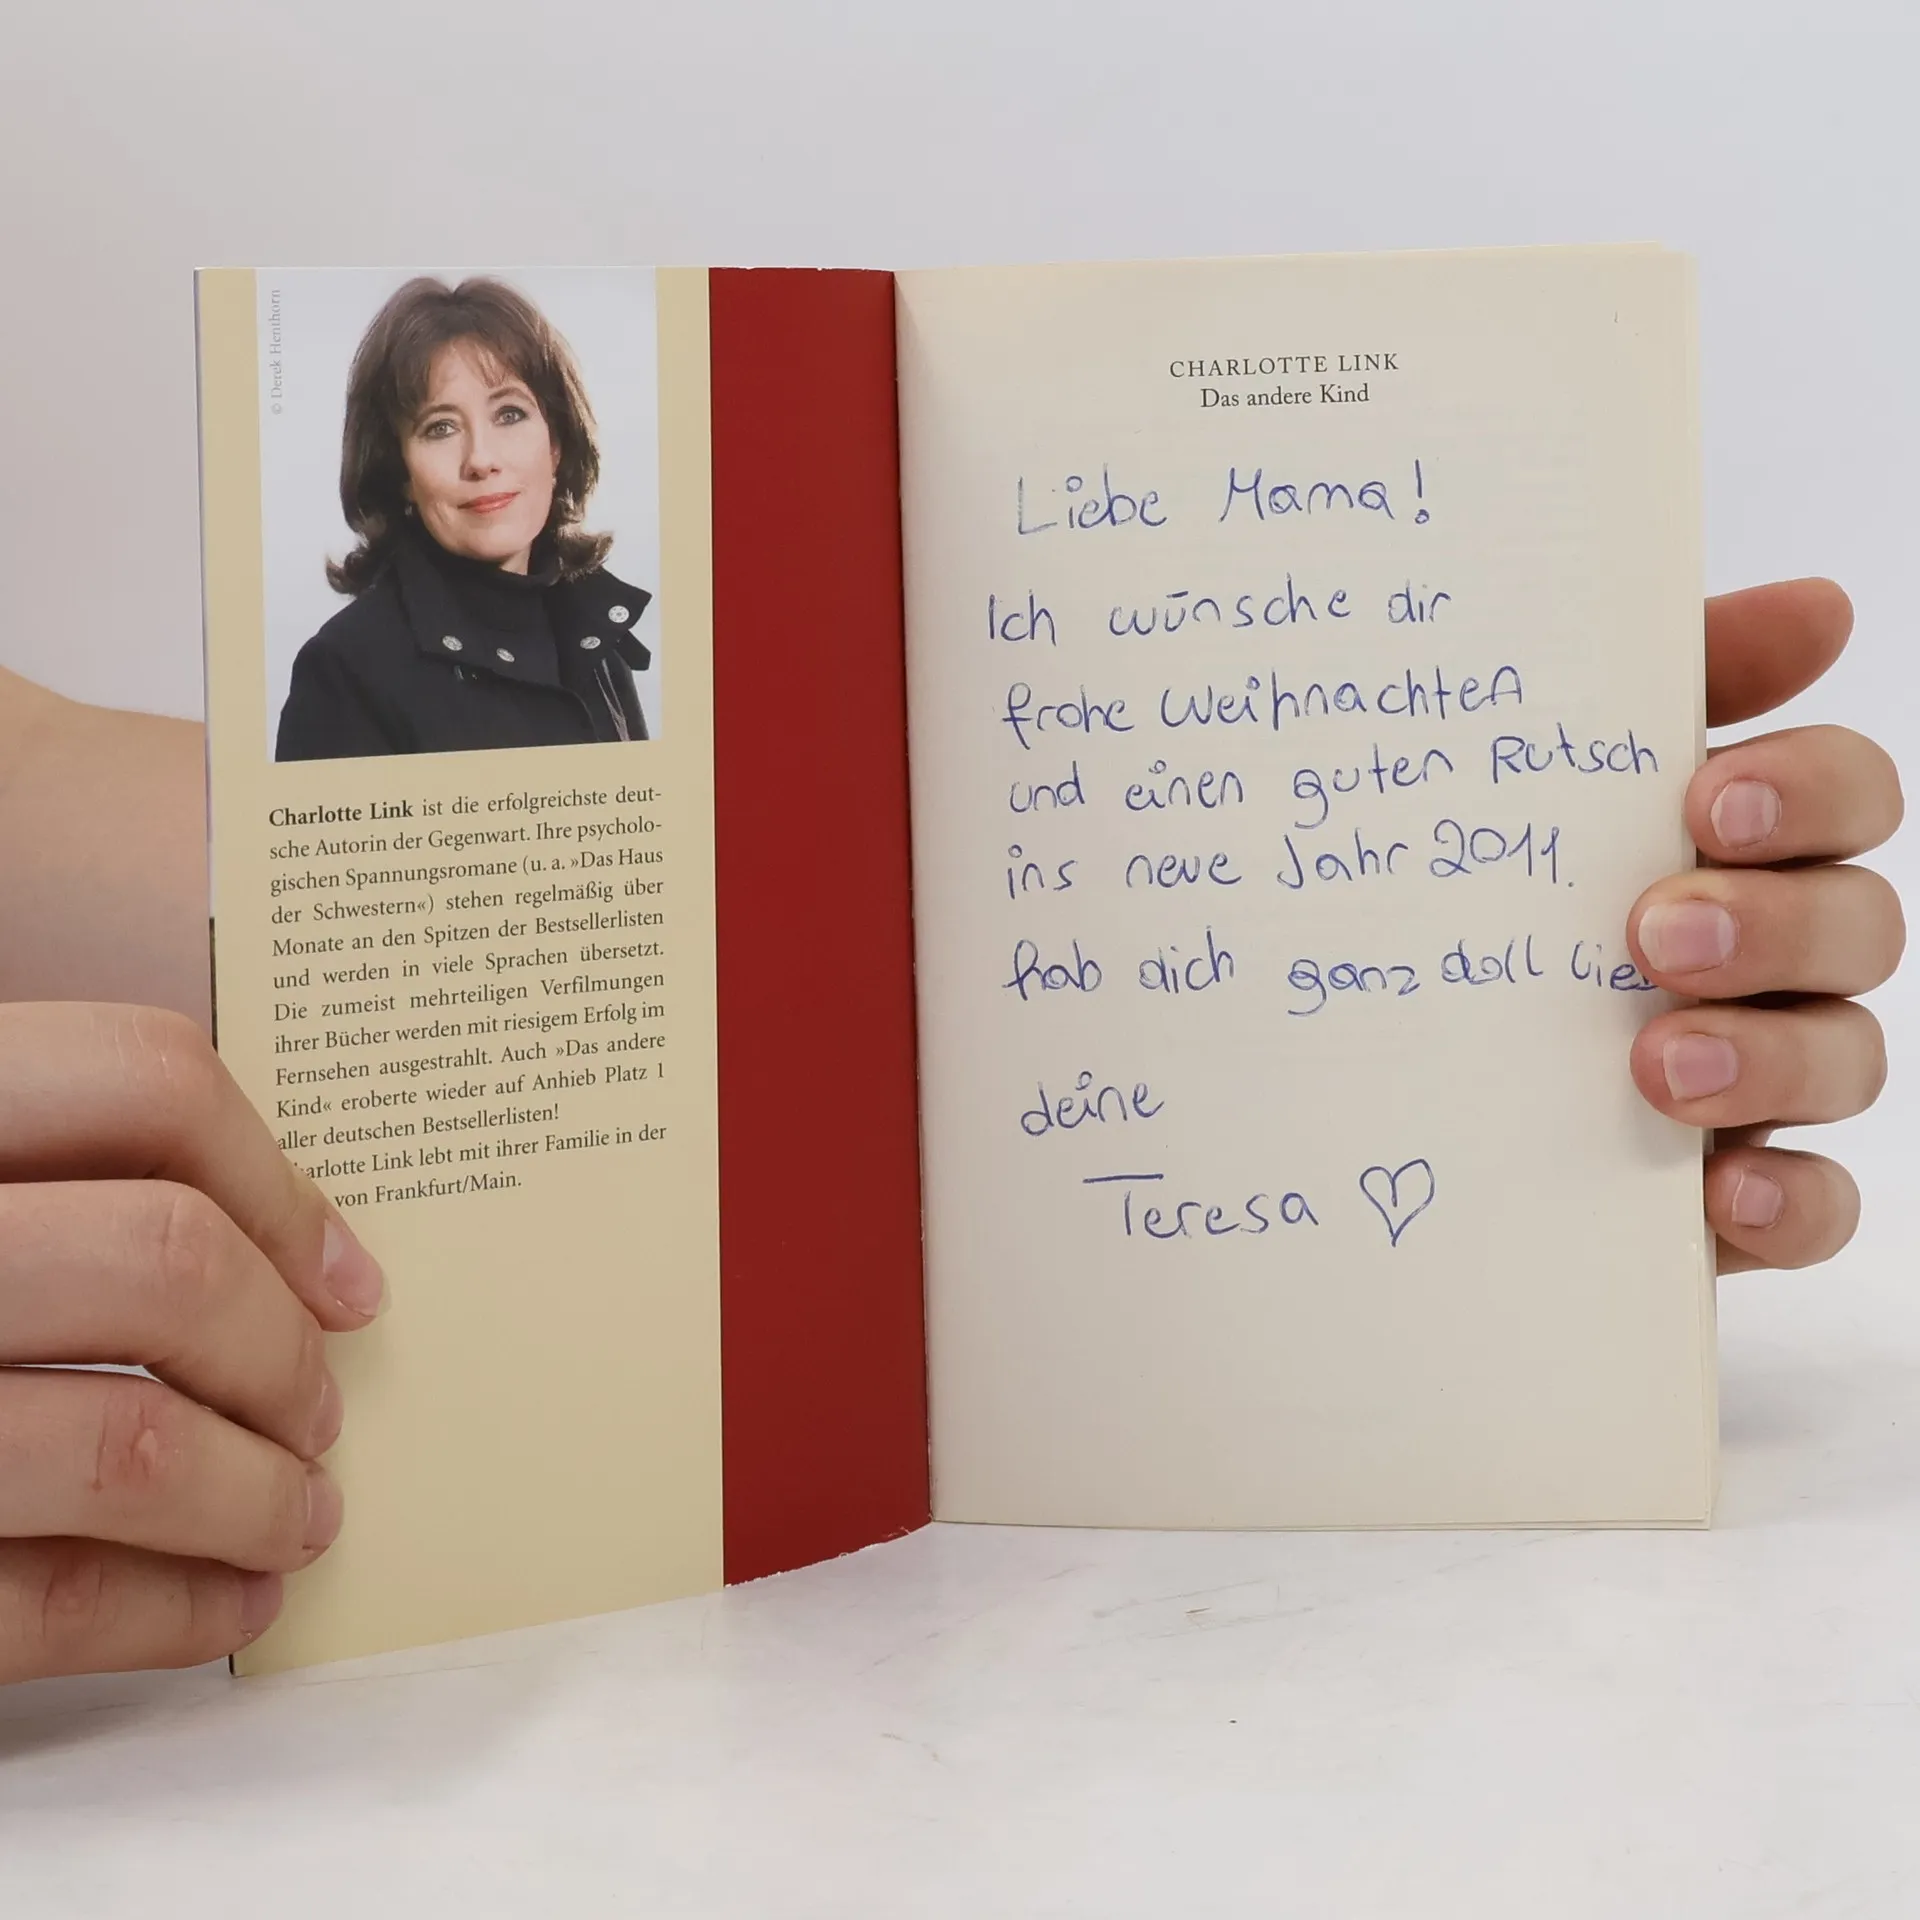 © Derek Henthorn
Charlotte Link ist die erfolgreichste deut-
sche Autorin der Gegenwart. Ihre psycholo-
gischen Spannungsromane (u. a. »Das Haus
der Schwestern«) stehen regelmäßig über
Monate an den Spitzen der Bestsellerlisten
und werden in viele Sprachen übersetzt.
Die zumeist mehrteiligen Verfilmungen
ihrer Bücher werden mit riesigem Erfolg im
Fernsehen ausgestrahlt. Auch »Das andere
Kind« eroberte wieder auf Anhieb Platz 1
aller deutschen Bestsellerlisten!
arlotte Link lebt mit ihrer Familie in der
von Frankfurt/Main.
CHARLOTTE LINK
Das andere Kind
Liebe Mama!
Ich wünsche dir
frohe Weihnachten
und einen guten Rutsch
ins neue Jahr 2011.
hab dich ganz doll lie
deine
Teresa ♡